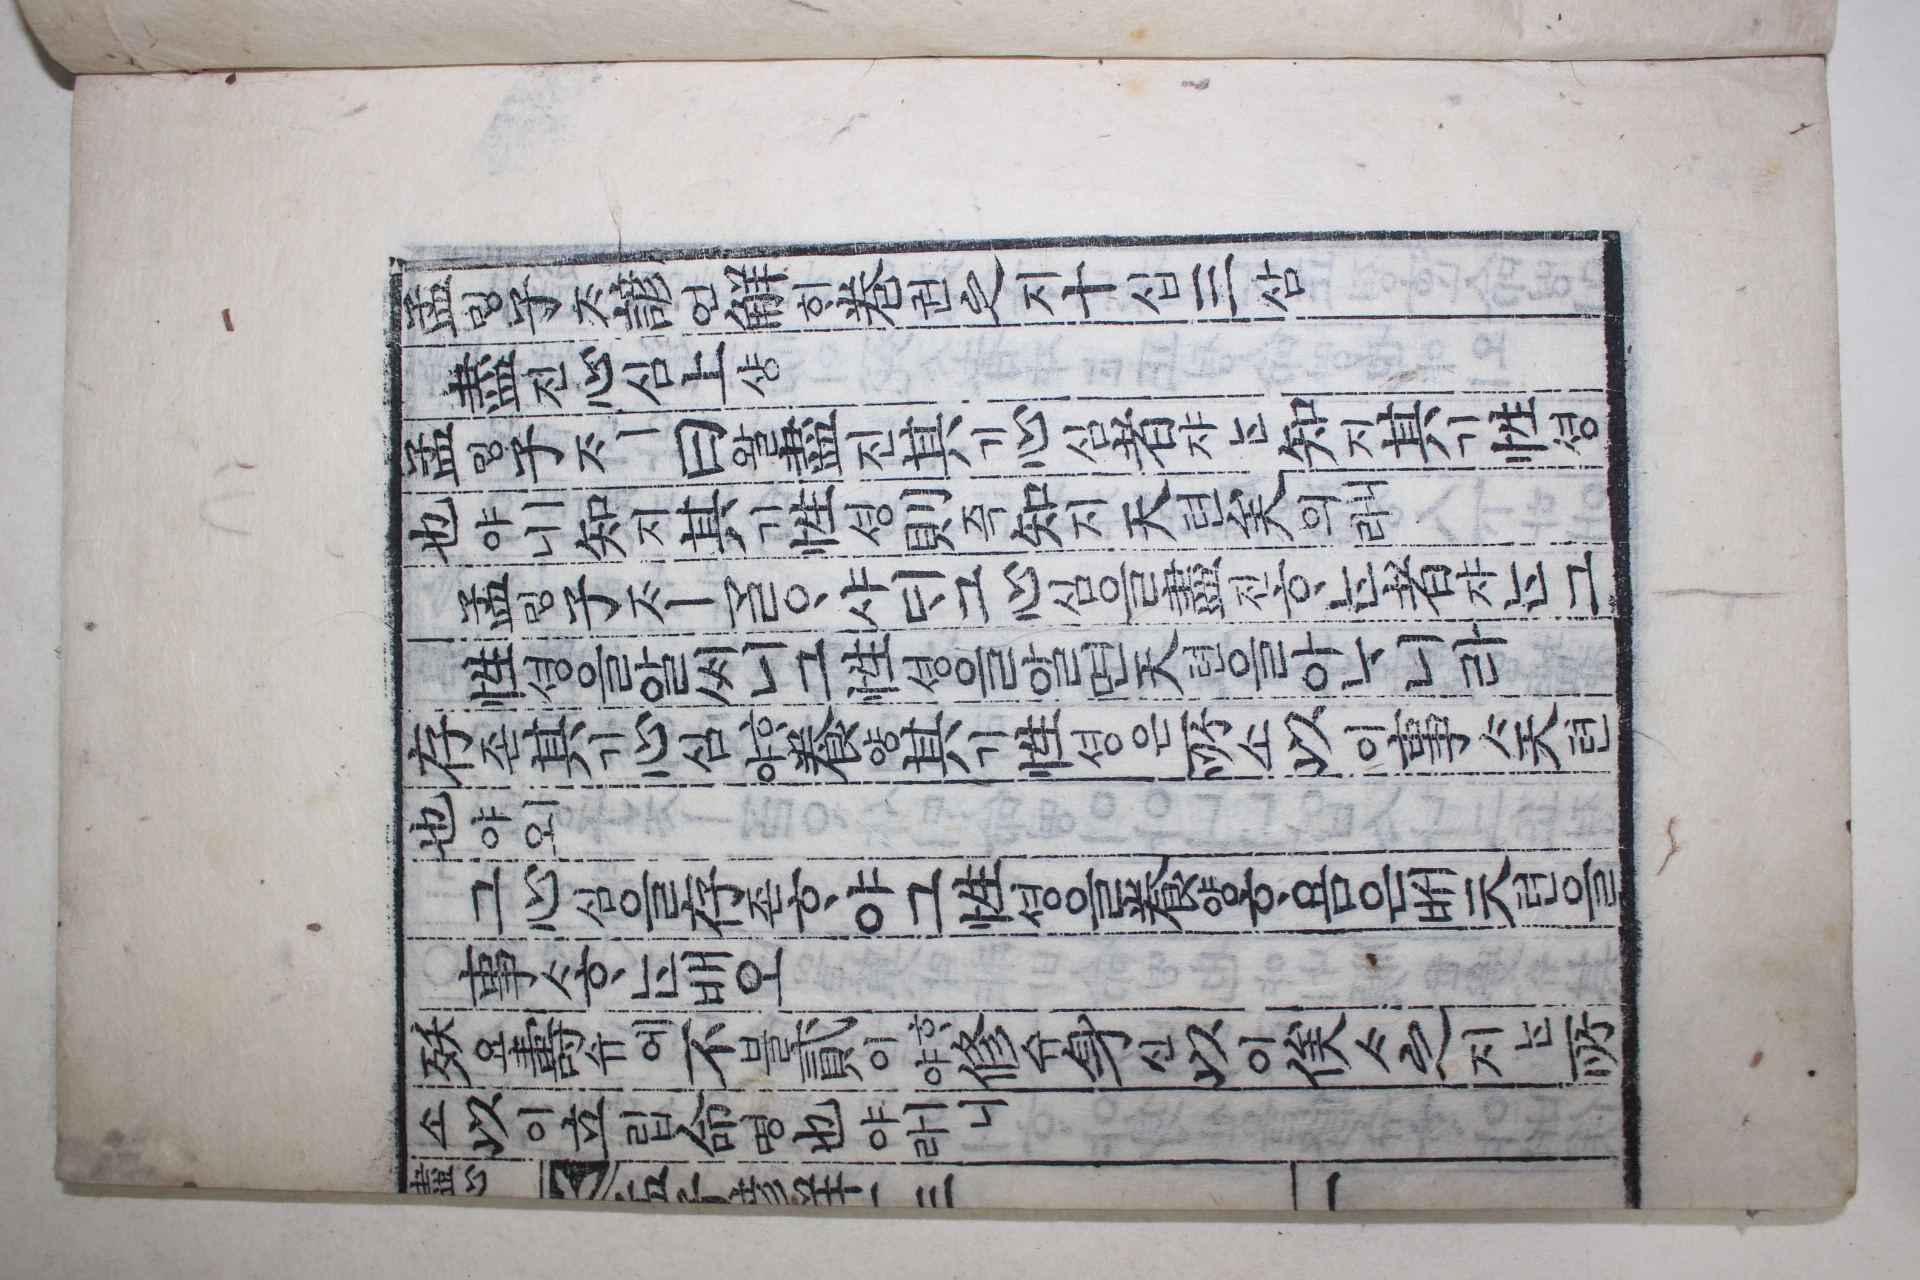 孟ᄆᆡᆼ子ᄌᆞ諺언解ᄒᆡ卷권之지十십三삼
盡진心심上샹
孟ᄆᆡᆼ子ᄌᆞㅣ曰왈盡진其기心심者쟈ᄂᆞᆫ知지其기性셩
也야ㅣ니知지其기性셩則즉知지天텬矣의래니
孟ᄆᆡᆼ子ᄌᆞㅣᄀᆞᆯᄋᆞ샤ᄃᆡ그心심을盡진ᄒᆞᄂᆞᆫ者쟈ᄂᆞᆫ그
性셩을알ᄊᆡ니그性셩을알면天텬을아ᄂᆞ니라
存존其기心심ᄒᆞ야養양其기性셩은所소以이事ᄉᆞ天텬
也야외
그心심을存존ᄒᆞ야그性셩을養양ᄒᆞ욤은ᄡᅥ天텬을
事ᄉᆞᄒᆞᄂᆞᆫ배오
殀요壽슈에不블貳이ᄒᆞ야修슈身신以이俟ᄉᆞ之지ᄂᆞᆫ所
소以이立립命명也야래니
盡心 孟子諺解十三 一